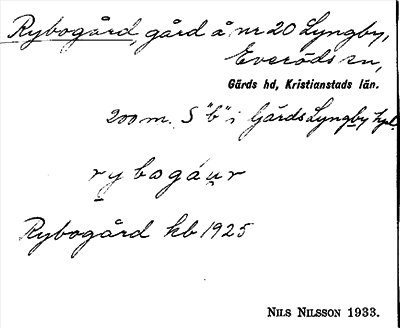 Rybogård, gård å nr 20 Lyngby,
Everöds sn,
Gärds hd, Kristianstads län.
200 m. S "b" i Gärds Lyngby hpl.
rybogáur
Rybogård kb 1925
NILS NILSSON 1933.